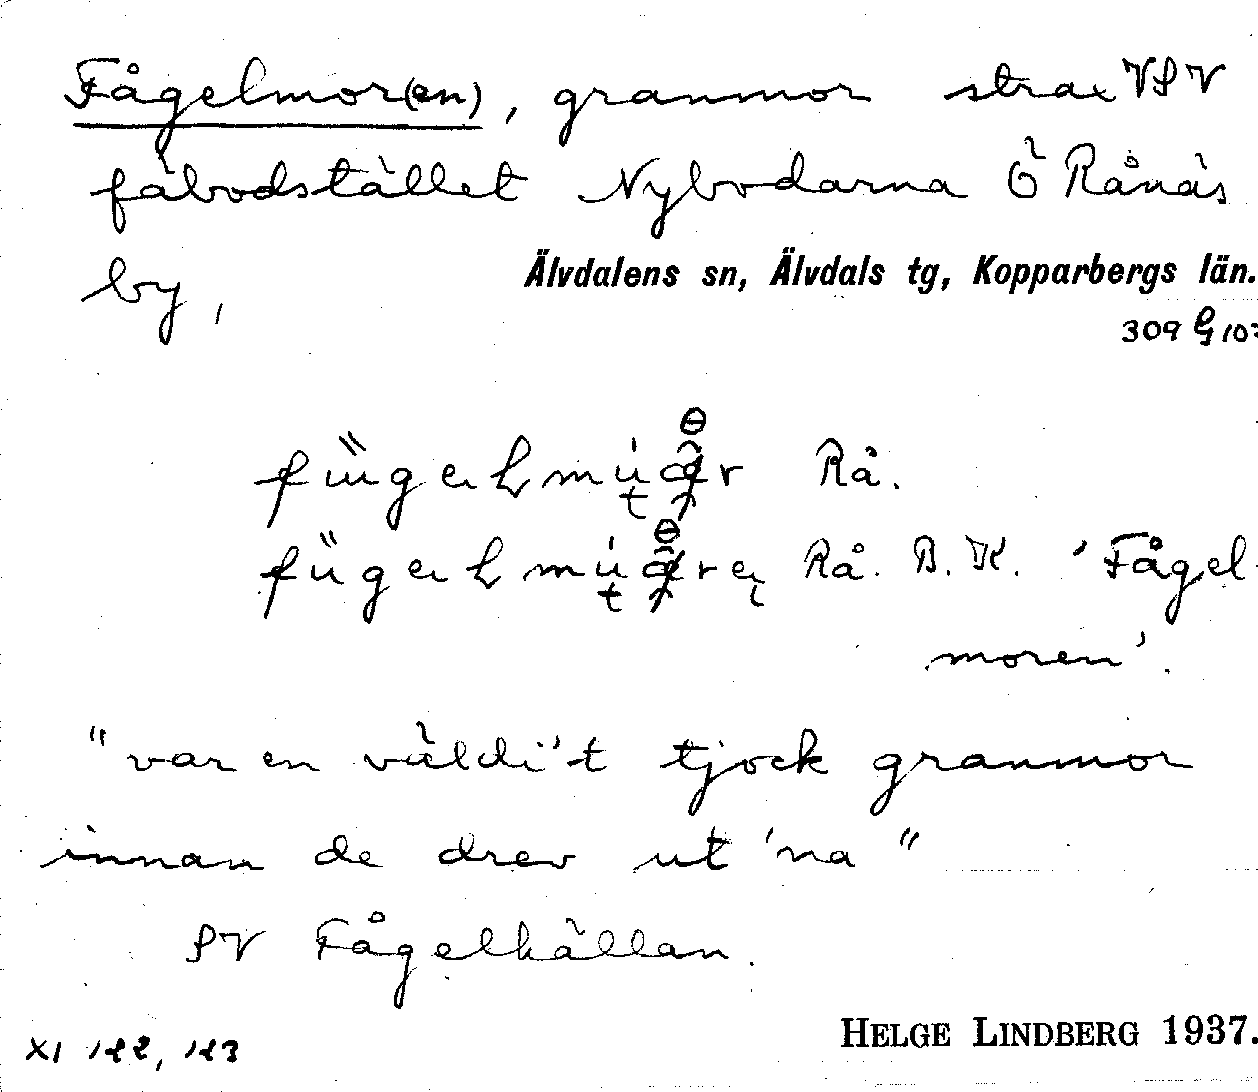 Fågelmor(en), granmor strax VSV
fäbodstället Nybodarna Ö Rånäs
by,
Älvdalens sn, Älvdals tg, Kopparbergs län.
309
Rå.
Rå. B. K. 'Fågel
moren'.
"var en väldi't tjock granmor
innan de drev ut 'na"
SV Fågelkällan.
XI 122, 123
HELGE LINDBERG 1937.